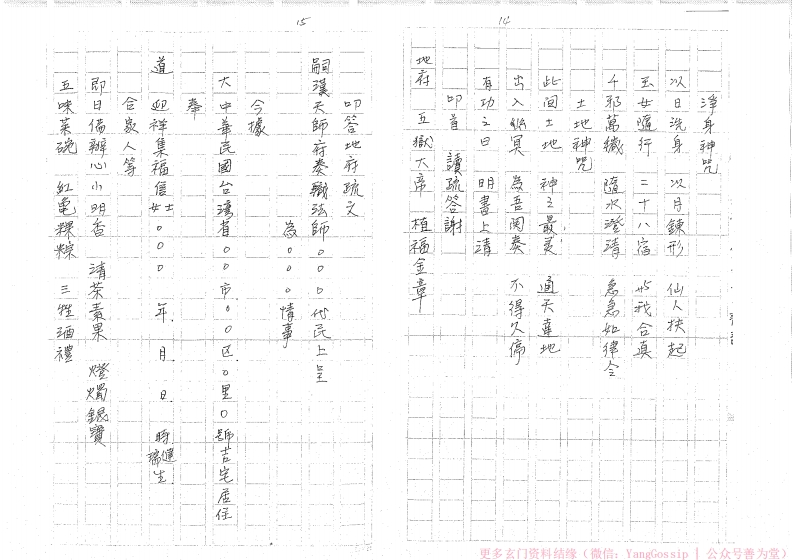 14
淨身神咒
以日洗身 以月鍊形 仙人扶起
玉女隨行 二十八宿 與我合真
千邪萬穢 隨水澄清 急急如律令
土地神咒
此間土地 神之最灵 通天達地
出入幽冥 為吾関奏 不得久停
有功之日 明書上清
叩首 讀疏答謝
地府 五嶽大帝 植福金章
15
叩答地府疏文
嗣漢天師府奏職法師○○○代民上呈
為○○○情事
今據
大中華民國台灣省○○市○○区○里○號吉宅居住
奉
道 迎祥集福信士女○○○ 年 月 日 時建瑞生
合家人等
即日偹辦心小明香 清茶素果 燈燭銀寶
五味菜碗 紅亀粿粽 三牲酒禮
更多玄门资料结缘（微信：YangGossip | 公众号善为堂）